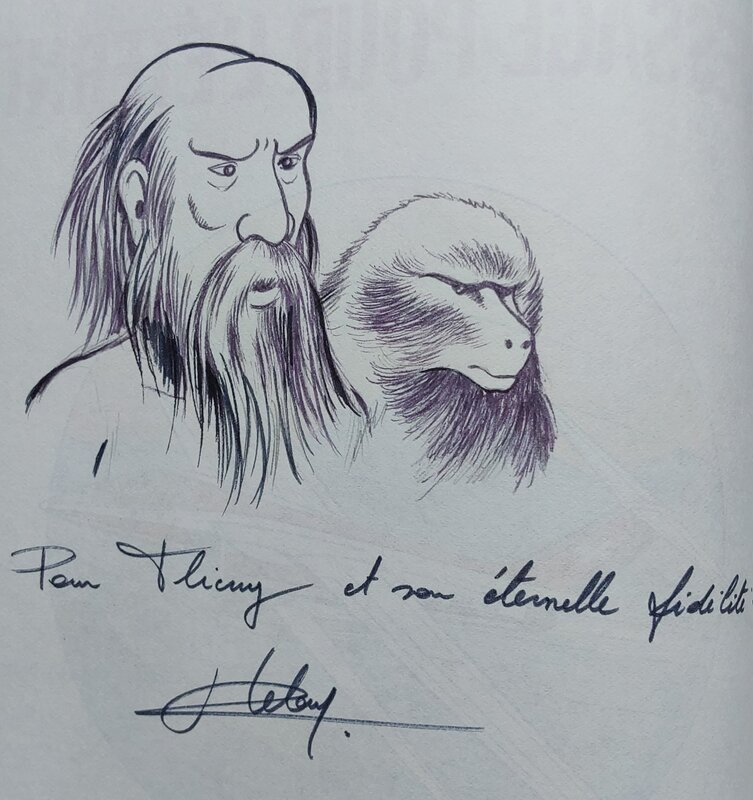 Pour Thierry et son éternelle fidélité